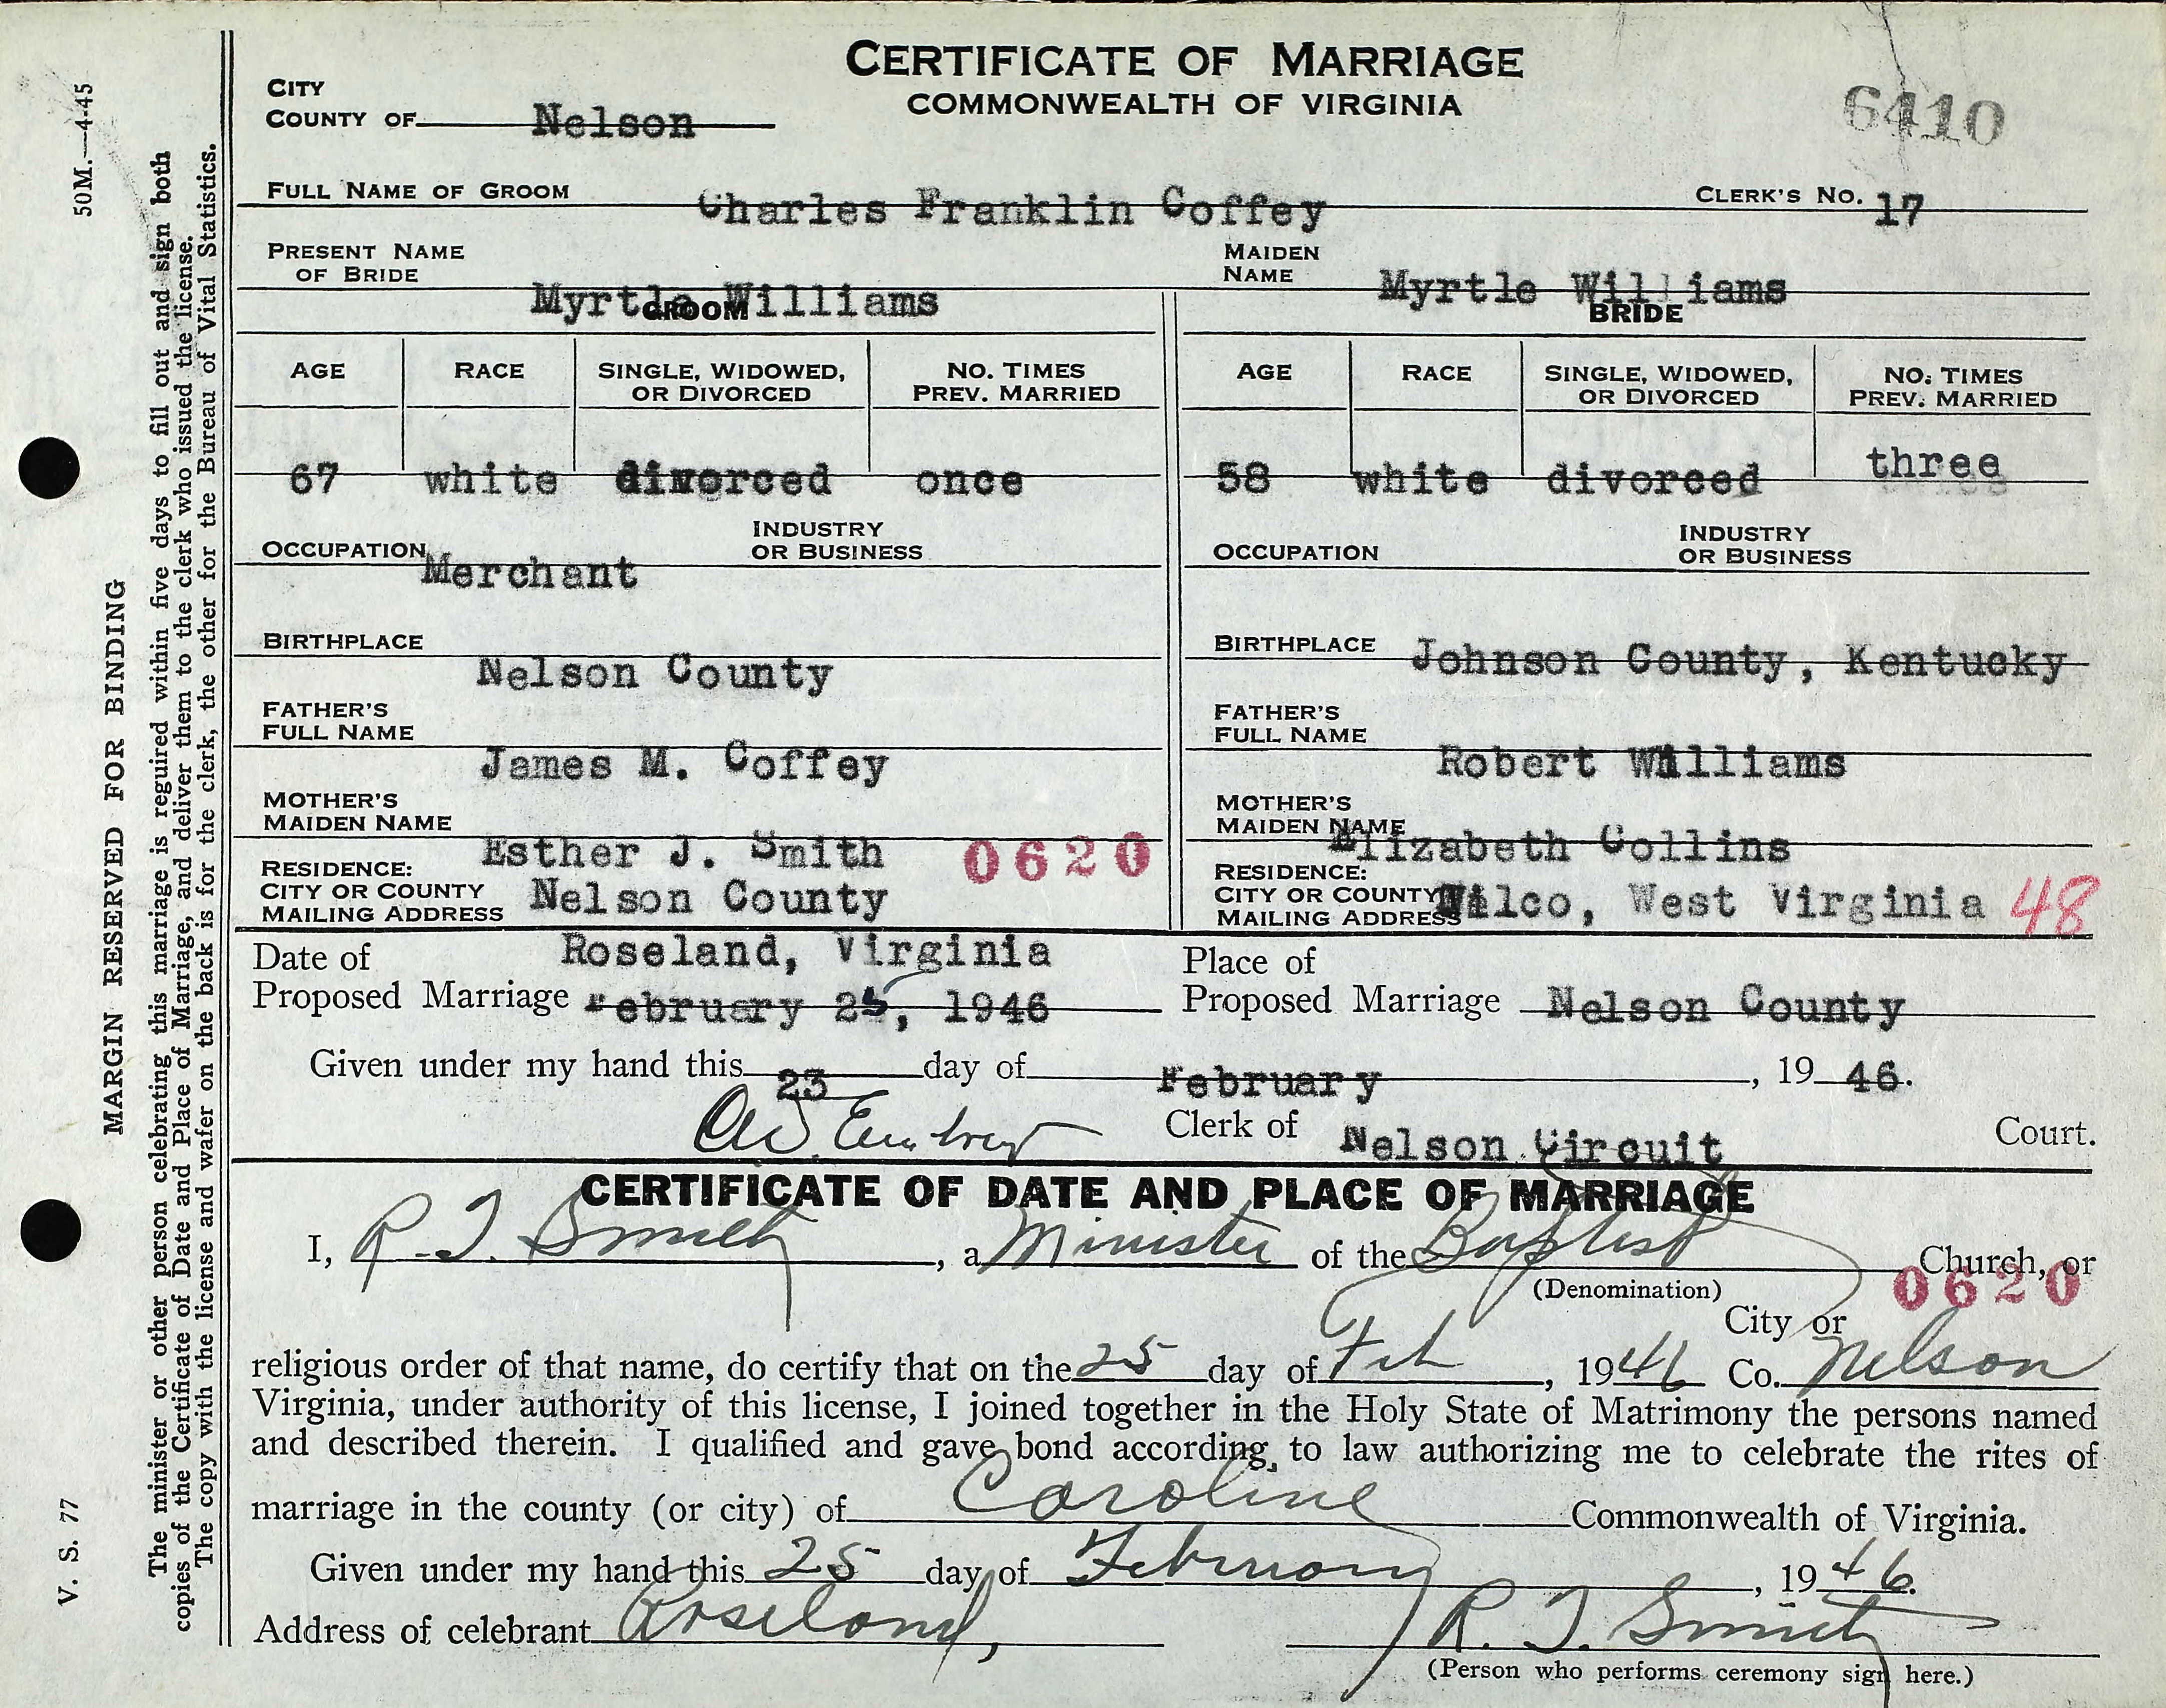 CERTIFICATE OF MARRIAGE
COMMONWEALTH OF VIRGINIA
CITY
COUNTY OF Nelson
6410
FULL NAME OF GROOM Charles Franklin Coffey CLERK'S NO. 17
PRESENT NAME OF BRIDE Myrtle Williams MAIDEN NAME Myrtle Williams
GROOM BRIDE
AGE RACE SINGLE, WIDOWED, OR DIVORCED NO. TIMES PREV. MARRIED AGE RACE SINGLE, WIDOWED, OR DIVORCED NO. TIMES PREV. MARRIED
67 white divorced once 58 white divorced three
OCCUPATION Merchant INDUSTRY OR BUSINESS OCCUPATION INDUSTRY OR BUSINESS
BIRTHPLACE Nelson County BIRTHPLACE Johnson County, Kentucky
FATHER'S FULL NAME James M. Coffey FATHER'S FULL NAME Robert Williams
MOTHER'S MAIDEN NAME Esther J. Smith 0620 MOTHER'S MAIDEN NAME Elizabeth Collins
RESIDENCE: CITY OR COUNTY Nelson County RESIDENCE: CITY OR COUNTY Wilco, West Virginia 48
MAILING ADDRESS Roseland, Virginia MAILING ADDRESS
Date of Proposed Marriage February 25, 1946 Place of Proposed Marriage Nelson County
Given under my hand this 23 day of February, 1946.
Clerk of Nelson Circuit Court.
CERTIFICATE OF DATE AND PLACE OF MARRIAGE
I, R. T. Smith, a Minister of the Baptist Church, or
(Denomination)
0620
City or
religious order of that name, do certify that on the 25 day of Feb, 1946 Co. Nelson
Virginia, under authority of this license, I joined together in the Holy State of Matrimony the persons named
and described therein. I qualified and gave bond according to law authorizing me to celebrate the rites of
marriage in the county (or city) of Caroline Commonwealth of Virginia.
Given under my hand this 25 day of February, 1946.
Address of celebrant Roseland, R. T. Smith
(Person who performs ceremony sign here.)
50M.—4-45
MARGIN RESERVED FOR BINDING
V. S. 77
The minister or other person celebrating this marriage is required within five days to fill out and sign both
copies of the Certificate of Date and Place of Marriage, and deliver them to the clerk who issued the license.
The copy with the license and wafer on the back is for the clerk, the other for the Bureau of Vital Statistics.